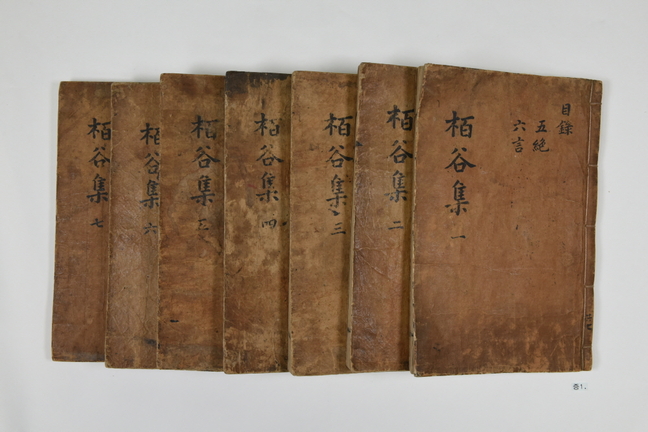 目錄
五絶
六言
栢谷集 一
栢谷集 二
栢谷集 三
栢谷集 四
栢谷集 五
栢谷集 六
栢谷集 七
81.